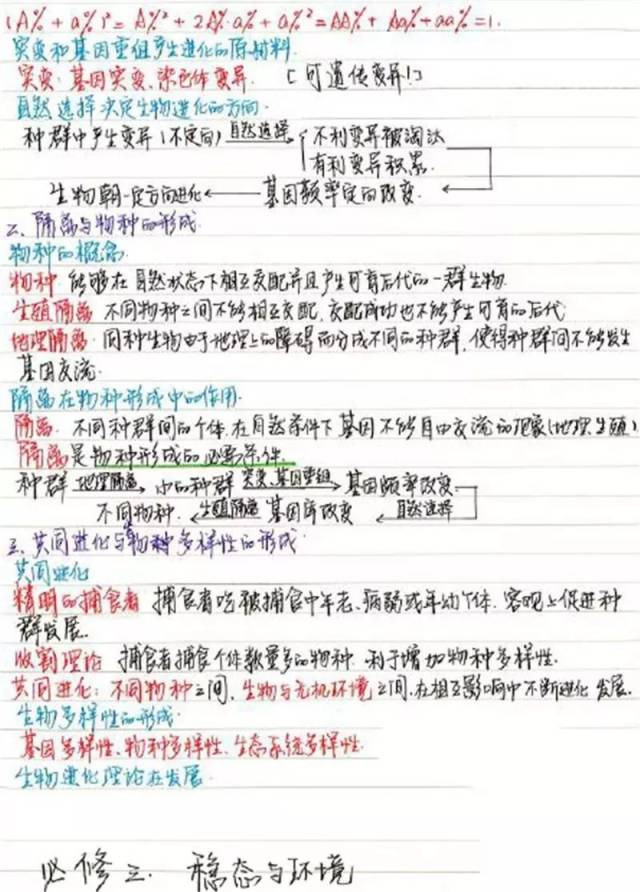 (A% + a%)² = A%² + 2A%·a% + a%² = AA% + Aa% + aa% = 1.
突变和基因重组产生进化的原材料
突变:基因突变、染色体变异. [可遗传变异!]
自然选择决定生物进化的方向.
种群中产生变异(不定向) 自然选择→ 不利变异被淘汰
有利变异积累.
生物朝一定方向进化 ← 基因频率定向改变. ←
二、隔离与物种的形成.
物种的概念
物种 能够在自然状态下相互交配并且产生可育后代的一群生物.
生殖隔离 不同物种之间不能相互交配,交配成功也不能产生可育的后代
地理隔离. 同种生物由于地理上的障碍而分成不同的种群,使得种群间不能发生
基因交流.
隔离在物种形成中的作用.
隔离. 不同种群间的个体,在自然条件下基因不能自由交流的现象(地理、生殖)
隔离是物种形成的必要条件.
种群 地理隔离→ 小的种群 突变、基因重组→ 基因频率改变
不同物种. ←生殖隔离 基因库改变 ←自然选择
三、共同进化与物种多样性的形成.
共同进化
精明的捕食者 捕食者吃被捕食中年老、病弱或年幼个体.客观上促进种
群发展.
收割理论 捕食者捕食个体数量多的物种.利于增加物种多样性.
共同进化:不同物种之间、生物与无机环境之间,在相互影响中不断进化发展.
生物多样性的形成.
基因多样性、物种多样性、生态系统多样性.
生物进化理论在发展.
必修三. 稳态与环境